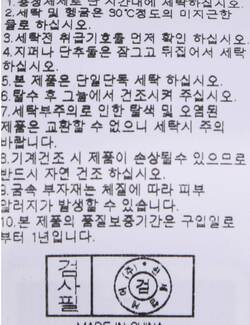 1.중성세제로 단 시간내에 세탁하십시오.
2.세탁 및 헹굼은 30℃정도의 미지근한
물로 하십시오.
3.세탁전 취급기호를 먼저 확인 하십시오
4.지퍼나 단추둘은 잠그고 뒤집어서 세탁
하십시오.
5.본 제품은 단일단독 세탁 하십시오.
6.탈수 후 그늘에서 건조시켜 주십시오.
7.세탁부주의로 인한 탈색 및 오염된
제품은 교환할 수 없으니 세탁시 주의
바랍니다.
8.기계건조 시 제품이 손상될수 있으므로
반드시 자연 건조 하십시오.
9.금속 부자재는 체질에 따라 피부
알러지가 발생할 수 있습니다.
10.본 제품의 품질보증기간은 구입일로
부터 1년입니다.
검사필
검
MADE IN CHINA